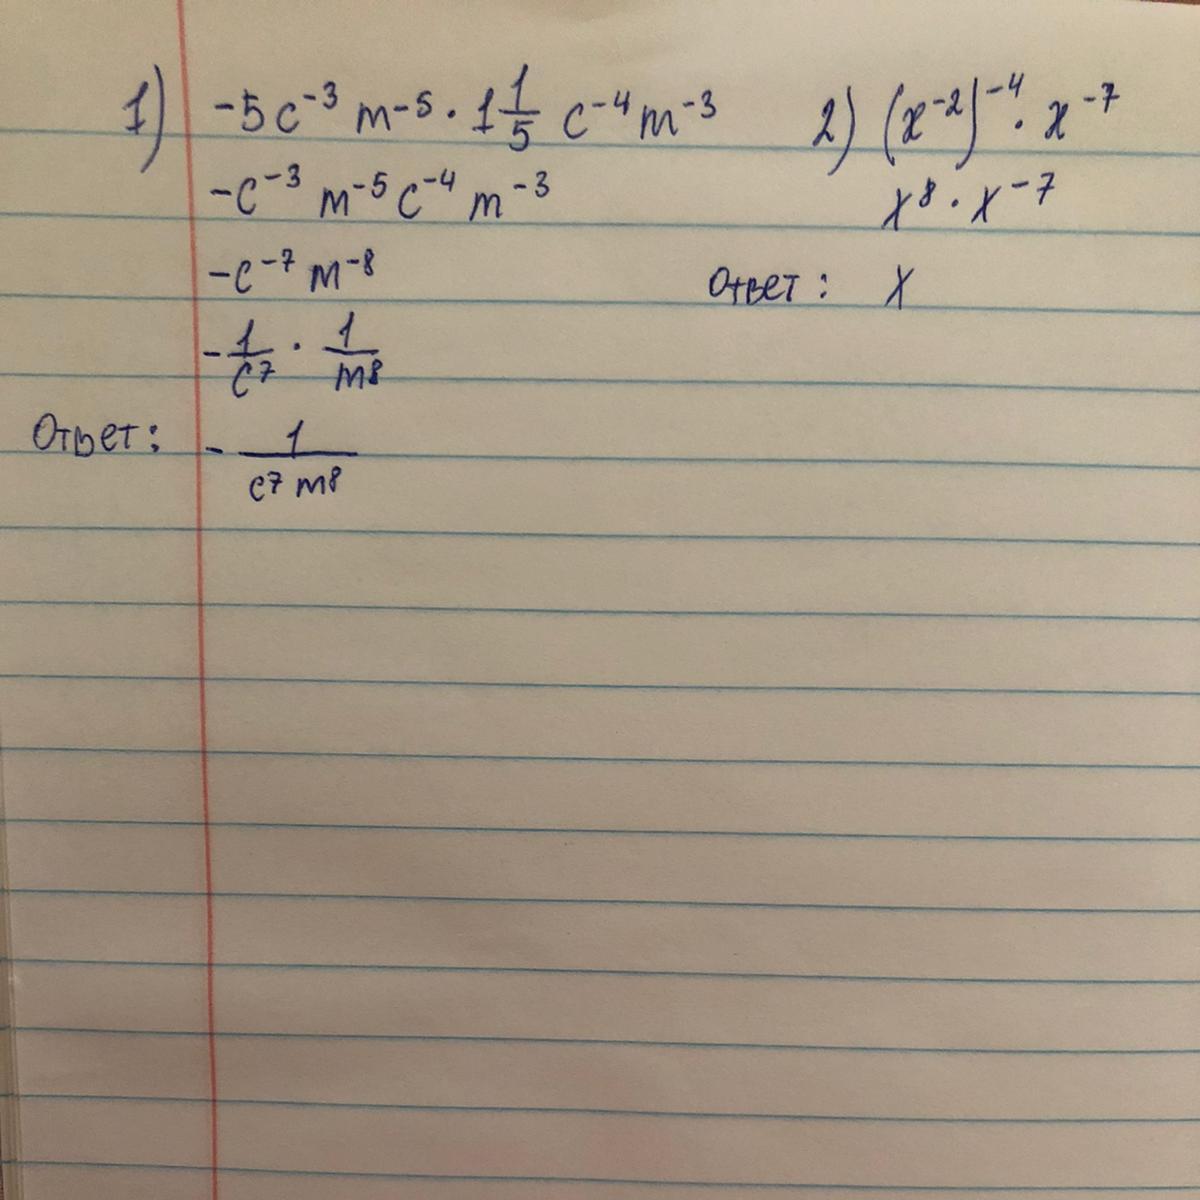 1) -5c⁻³ m⁻⁵ · 1 1/5 c⁻⁴ m⁻³
-c⁻³ m⁻⁵ c⁻⁴ m⁻³
-c⁻⁷ m⁻⁸
-1/c⁷ · 1/m⁸
Ответ: - 1/c⁷ m⁸
2) (x⁻²)⁻⁴ · x⁻⁷
x⁸ · x⁻⁷
Ответ: x